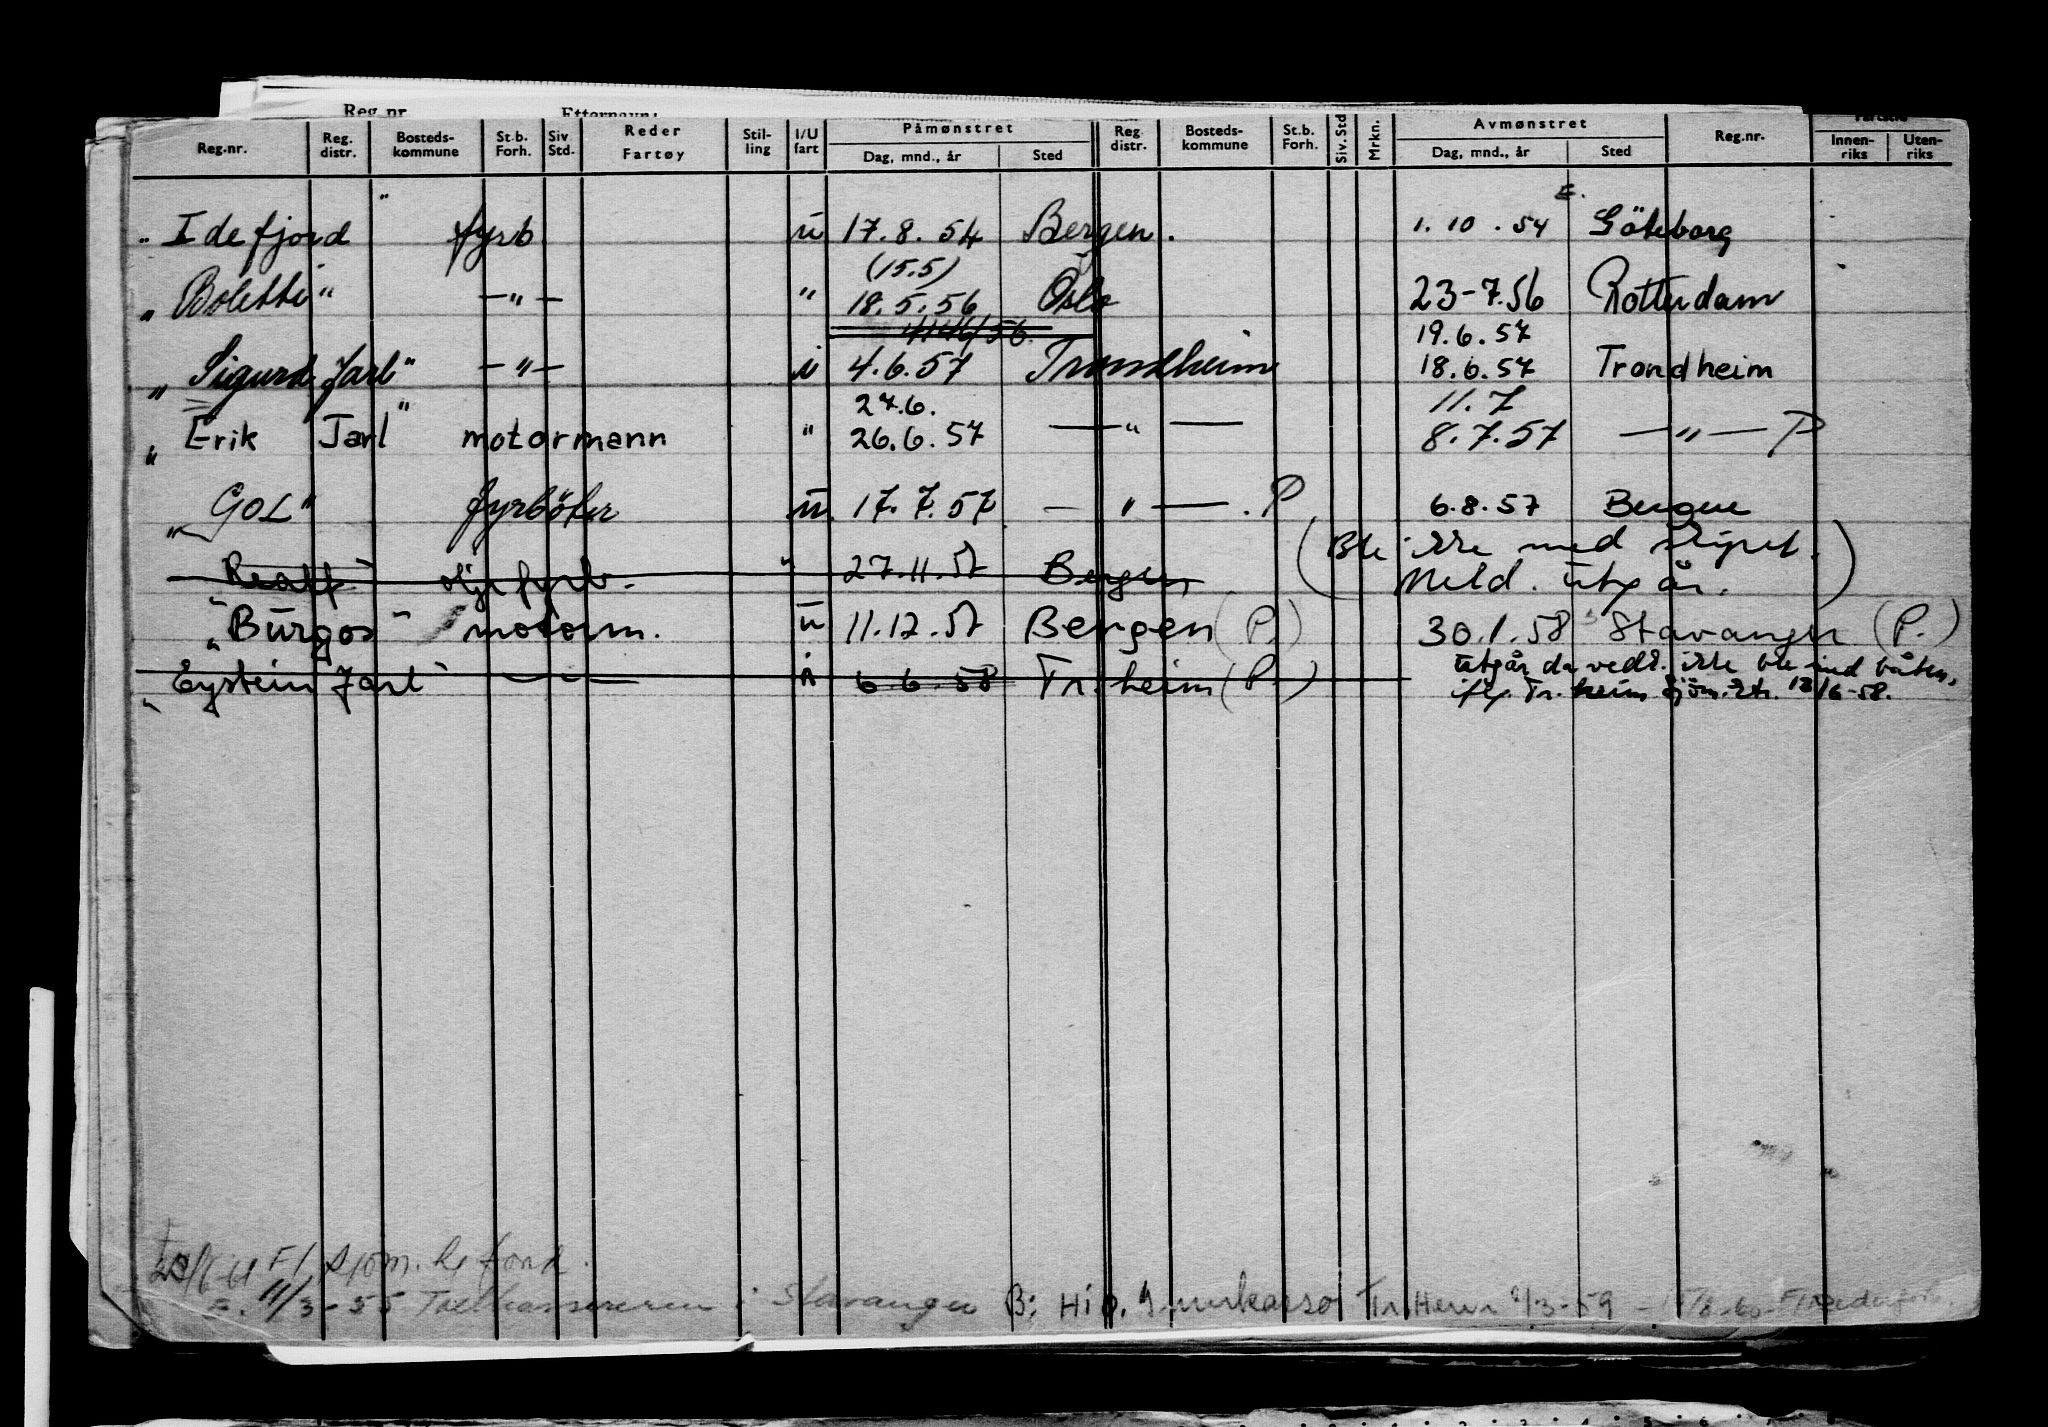 Reg.nr. Etternavn:
Reg.nr. Reg. distr. Bosteds-kommune St.b. Forh. Siv. Std. Reder Fartøy Stil-ling I/U fart Påmønstret Dag, mnd., år Sted Reg. distr. Bosteds-kommune St.b. Forh. Siv. Std. Mrkn. Avmønstret Dag, mnd., år Sted Reg.nr. Fartstid Innen-riks Uten-riks
" Idefjord " fyrb u 17.8.54 Bergen. 1.10.54 Göteborg
(15.5)
" Boletti " —"— " 18.5.56 Oslo 23-7.56 Rotterdam
19.6.57
" Sigurd Jarl " —"— i 4.6.57 Trondheim 18.6.57 Trondheim
27.6. 11.7
" Erik Jarl " motormann " 26.6.57 —"— 8.7.57 —"— P
" GOL " fyrböter u 17.7.57 —"—. P 6.8.57 Bergen
oljefyrb. " 27.11.57 Bergen (Ble ikke med skipet.
Meld. utgår.)
" Burgos " motorm. u 11.12.57 Bergen (P.) 30.1.58 Stavanger (P.)
" Eystein Jarl " —"— i 6.6.58 Tr.heim (P.) utgår da vedk. ikke ble med båten,
Tr.heim sjöm.ktr. 13/6-58.
F/ sjöm.
F. 11/3-55 i Stavanger B: Tr.Heim 2/3-59